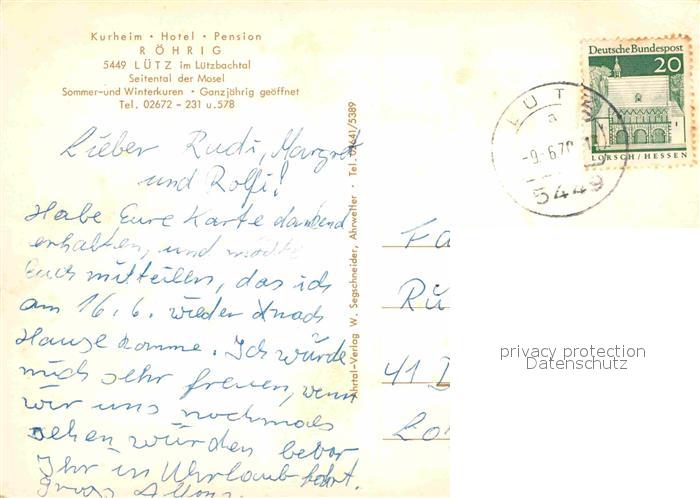 Kurheim • Hotel • Pension
RÖHRIG
5449 LÜTZ im Lützbachtal
Seitental der Mosel
Sommer-und Winterkuren • Ganzjährig geöffnet
Tel. 02672 - 231 u. 578
Lieber Rudi, Margret
und Rolfi!
Habe Eure Karte dankend
erhalten, und möchte
Euch mitteilen, das ich
am 16.6. wieder nach
Hause komme. Ich würde
mich sehr freuen, wenn
wir uns nochmals
sehen würden bevor
Ihr in Uhrlaub fahrt.
Gruss
Ahrtal-Verlag W. Segschneider, Ahrweiler • Tel. 02641/5389
Deutsche Bundespost
20
LORSCH/HESSEN
LÜTZ
a
-9.-6.70
5449
Fa
Rü
41 D
Lo
privacy protection
Datenschutz